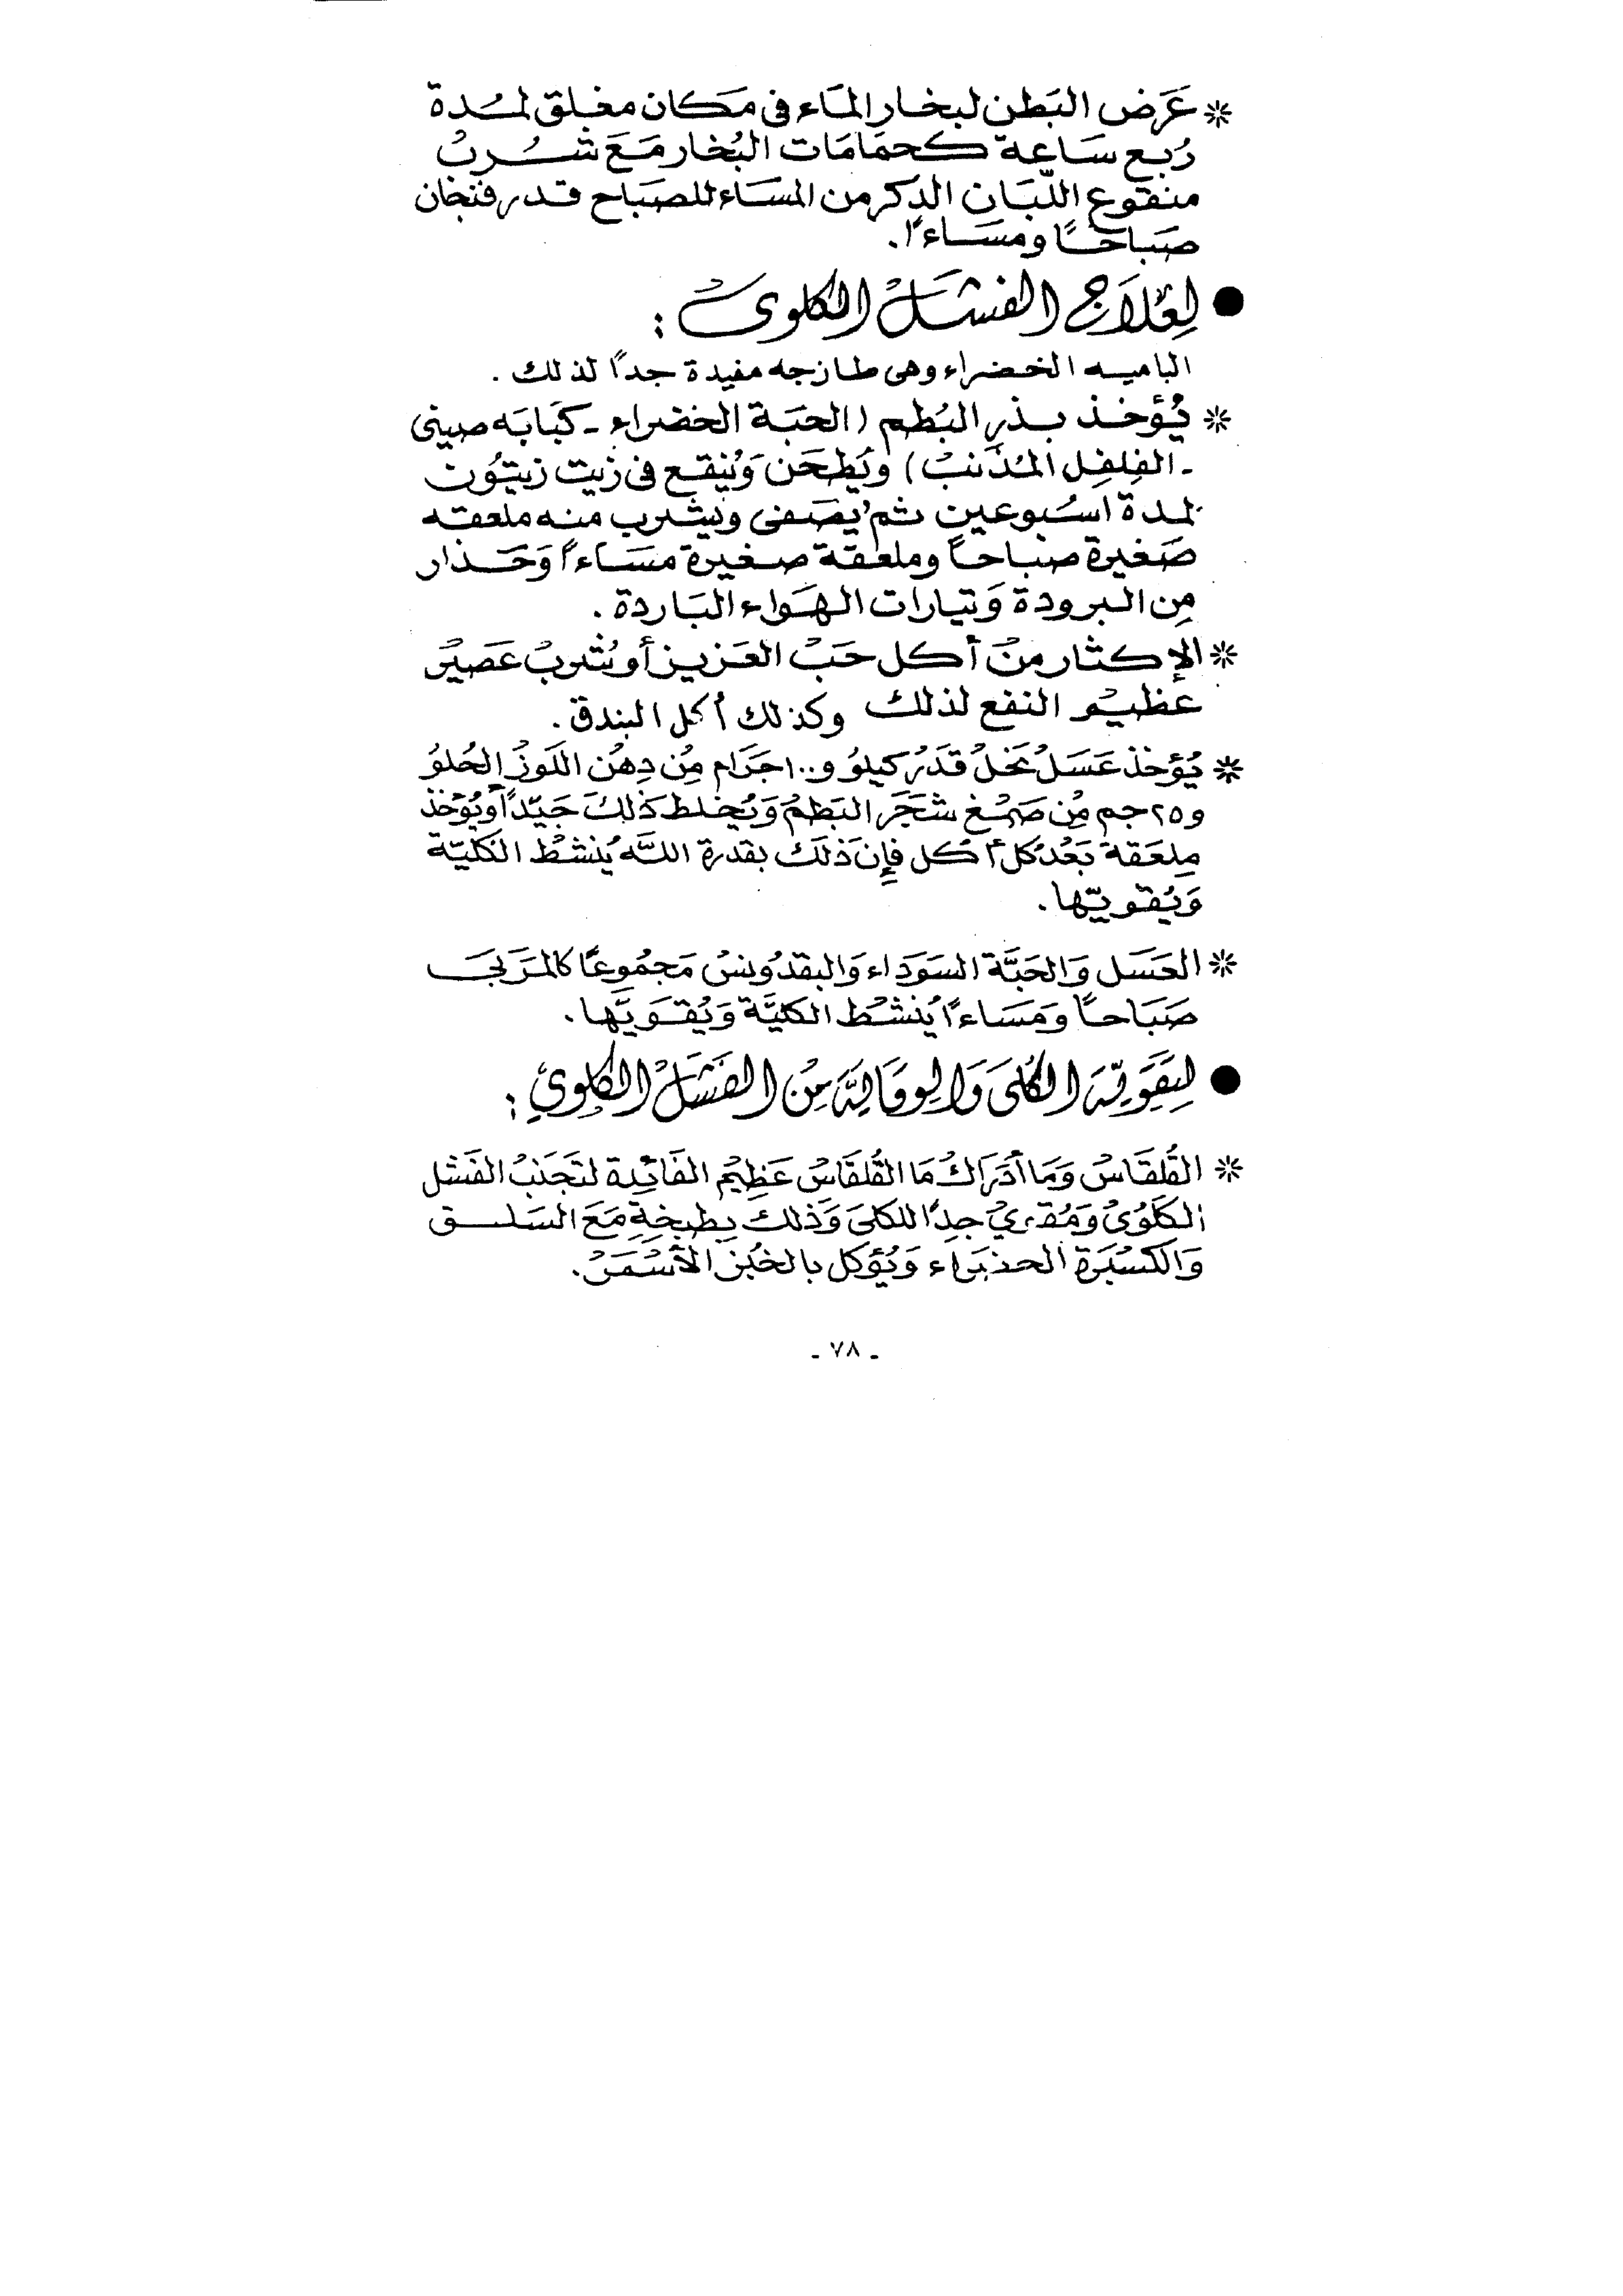 * عَرَض البَطن لبخار الماء فى مَكان مغلق لمُدة
رُبع سَاعة كحمَامَات البُخار مَعَ شُربُ
منقوع اللّبَان الدكر من المسَاء للصبَاح قدر فنجان
صَبَاحًا ومسَاءًا.
● لِعِلَاج الفشَلْ الكلوىْ :
الباميه الخضراء وهى طازجه مفيدة جداً لذلك .
* يُؤخذ بذر البُطم (الحبَة الخضراء - كبَابَه صينى
- الفِلفِل المُذَنبْ) ويُطحَن وَيُنقع فى زيت زيتُون
لمدة اسبُوعين ثم يُصَفى ويشرب منه ملعقه
صَغيرة صبَاحاً وملعَقة صغيرة مسَاءاً وَحَذار
مِن البرودة وَتيارات الهَواء البَاردة .
* الإكثار منْ أكل حَبْ العَزيز أو شُربُ عَصيرْ
عظيمْ النفع لذلك وكذلك أكل البندق .
* يُؤخذ عَسَلْ نحَلْ قدَرْ كيلوُ و١٠٠ جَرَام مِن دِهنْ اللَوزْ الحُلوُ
و٢٥ جم مِنْ صَمْغ شَجَر البَطمْ وَيُخلط ذَلكَ جَيّدًا وَيُؤخذ
مِلعَقة بَعْد كل أكل فإن ذلَك بقدرة اللَّه يُنشطْ الكليّة
وَيُقويّها.
* العَسَل وَالحَبَّة السَوَدَاء وَالبقدُونسْ مَجمُوعًا كالمرَبىَ
صَبَاحاً وَمَسَاءًا يُنشْط الكليَّة وَيُقَويَّها.
● لِتَقَوِيّة الكُلىَ وَالوِقَايَة مِنْ الفَشَلْ الكلوِي :
* القُلقَاسْ وَمَا أدَرَاكْ مَا القُلقَاسْ عَظِيمْ الفَائِدة لتَجَنبْ الفَشل
الكلَوْىْ وَمُقوِيْ جِدًا للكلىَ وَذلك بِطبخِة مَعَ السَلق
وَالكسْبَرة الخضراء وَيُؤكل بالخبُز الأسْمَرْ.
- ٧٨ -